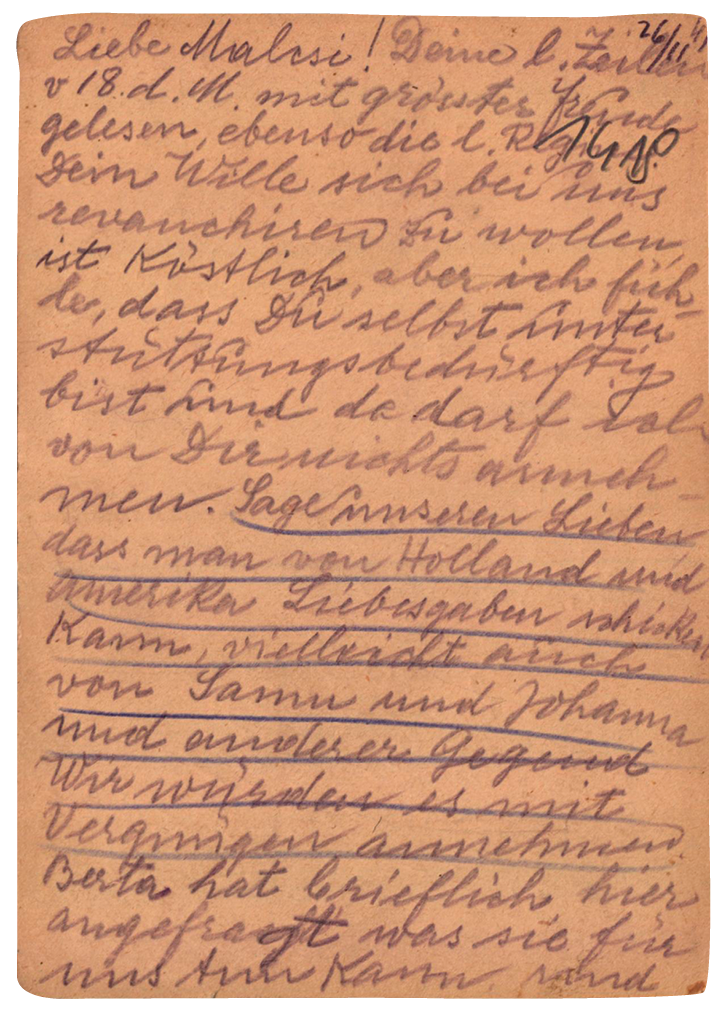 26/11 41
Liebe Malcsi! Deine l. Zeilen
v 18. d. M. mit grösster Freude
gelesen, ebenso die l.
Dein Wille sich bei uns
revanchiren zu wollen,
ist köstlich, aber ich füh-
le, dass Du selbst unter
stützungsbedürftig
bist und da darf ich
von Dir nichts anneh-
men. Sage unseren Lieben
dass man von Holland und
Amerika Liebesgaben schicken
kann, vielleicht auch
von Samu und Johanna
und anderer Gegend
Wir würden es mit
Vergnügen annehmen
Berta hat brieflich hier
angefragt was sie für
uns tun kann, sind